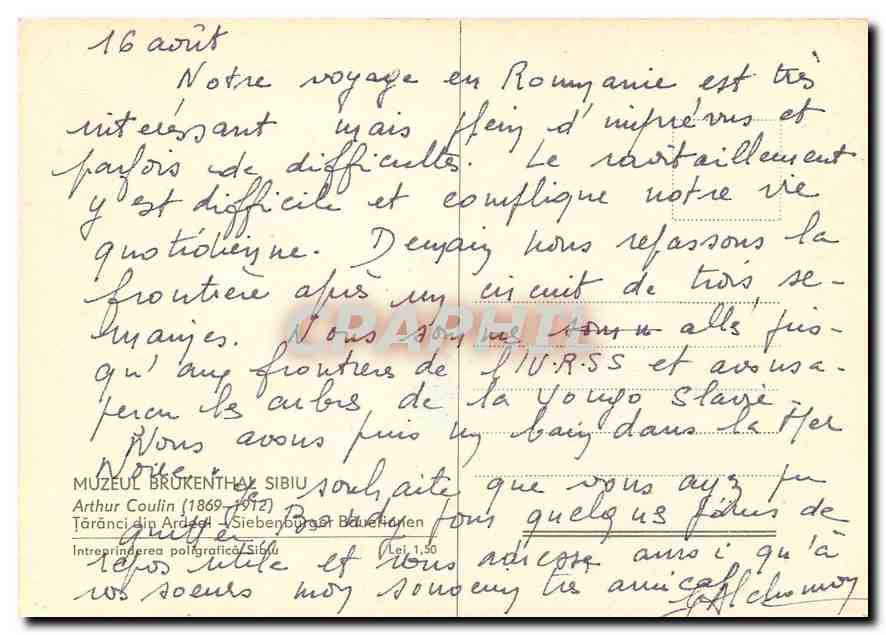 16 août
Notre voyage en Roumanie est très
intéressant mais plein d'imprévus et
parfois de difficultés. Le ravitaillement
y est difficile et complique notre vie
quotidienne. Demain nous repassons la
frontière après un circuit de trois se-
maines. Nous sommes allés jus-
qu'aux frontières de l'U.R.S.S et avons a-
perçu les arbres de la Yougo Slavie.
Nous avons pris un bain dans la Mer
Noire. Je souhaite que vous ayez pu
MUZEUL BRUKENTHAL SIBIU
Arthur Coulin (1869-1912)
Țărănci din Ardeal - Siebenbürger Bäuerinnen
quitter pour quelques jours de
Întreprinderea poligrafică Sibiu Lei 1,50
repos utile et vous adresse ainsi qu'à
vos soeurs mon souvenir très amical
CPAPHIL